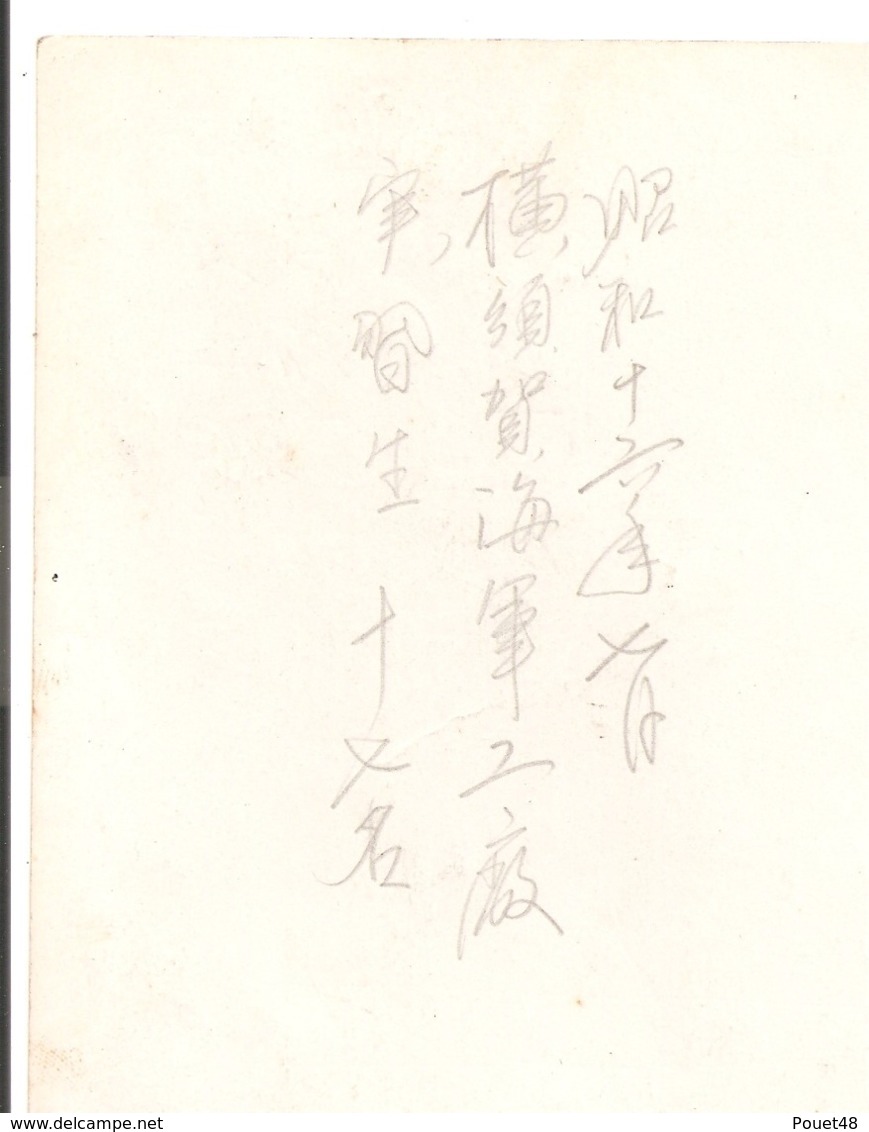 昭和十六年七月
横須賀海軍工廠
実習生 十七名
www.delcampe.net
Pouet48